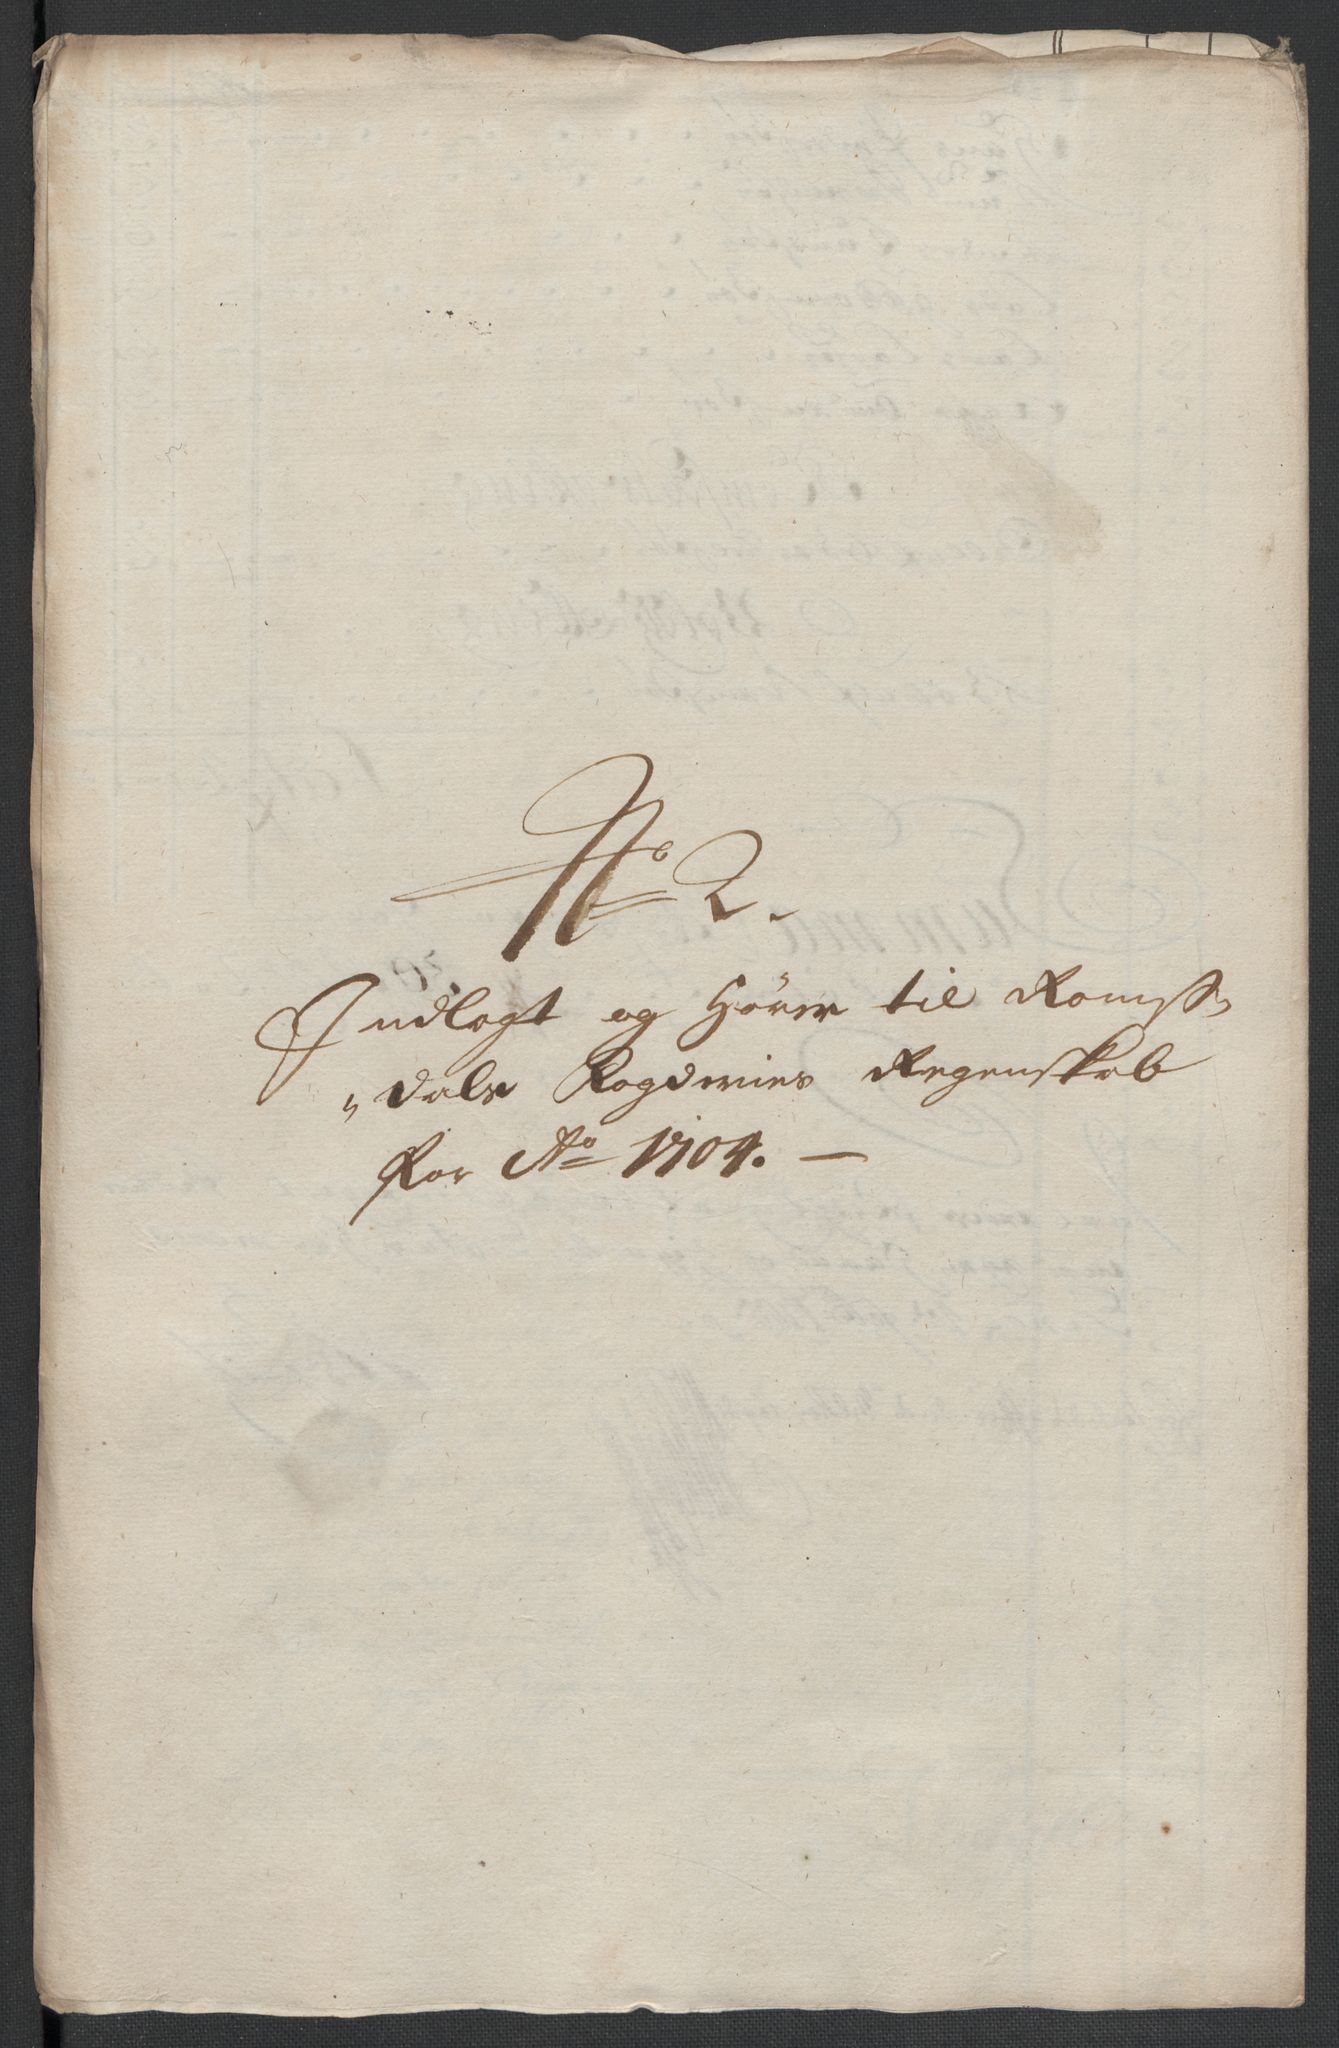 No 2.
Indlagt og Hører til Romss-
„dals Fogderies Regenskab
for Ao 1704. —